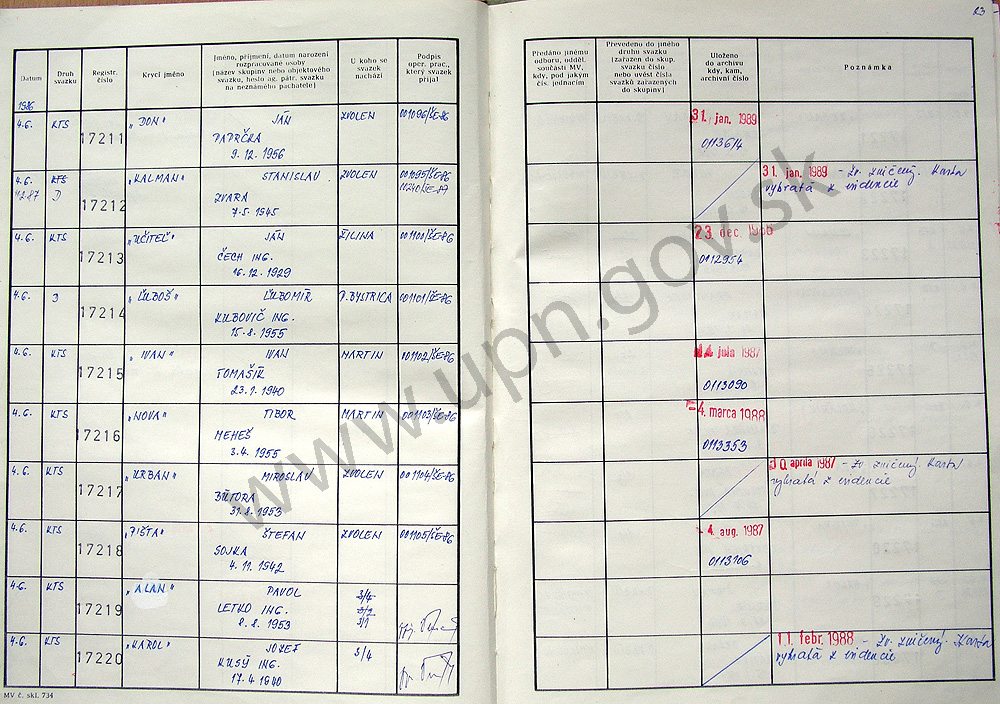 23
Datum
Druh svazku
Registr. číslo
Krycí jméno
Jméno, příjmení, datum narození
rozpracované osoby
(název skupiny nebo objektového
svazku, heslo ag. pátr. svazku
na neznámého pachatele)
U koho se
svazek
nachází
Podpis
oper. prac.,
který svazek
přijal
Předáno jinému
odboru, odděl.
součásti MV,
kdy, pod jakým
čís. jednacím
Převedeno do jiného
druhu svazku
(zařazen do skup.
svazku číslo
nebo uvést čísla
svazků zařazených
do skupiny)
Uloženo
do archivu
kdy, kam,
archivní číslo
Poznámka
1986
4.6. KTS 17211 „DON" JÁN ZVOLEN 001096/ŠE-86 31. jan. 1989
PAPRČKA 0113614
9. 12. 1956
4.6. KTS 17212 „KALMAN" STANISLAV ZVOLEN 001095/ŠE-86 31. jan. 1989 - Zv. zničený. Karta
D ZVARA vybratá z evidencie
7.5. 1945
4.6. KTS 17213 „UČITEĽ" JÁN ŽILINA 001100/ŠE-86 23. dec. 1986
ČECH ING. 0112954
16.12. 1929
4.6. D 17214 „ĽUBOŠ" ĽUBOMÍR P. BYSTRICA 001101/ŠE-86
KUBOVIČ ING.
15. 8. 1955
4.6. KTS 17215 „IVAN" IVAN MARTIN 001102/ŠE-86 júla 1987
TOMAŠÍK 0113090
23. 7. 1940
4.6. KTS 17216 „NOVA" TIBOR MARTIN 001103/ŠE-86 4. marca 1988
MEHEŠ 0113353
3.4. 1955
4.6. KTS 17217 „URBAN" MIROSLAV ZVOLEN 001104/ŠE-86 30 apríla 1987 - Zv. zničený. Karta
BÚTORA vybratá z evidencie
31. 8. 1953
4.6. KTS 17218 „PIŠTA" ŠTEFAN ZVOLEN 001105/ŠE-86 - 4. aug. 1987
SOJKA 0113106
4. 11. 1942
4.6. KTS 17219 „ALAN" PAVOL 3/4
LETKO ING.
8. 8. 1953 3/1
4.6. KTS 17220 „KAROL" JOZEF 3/4 11. febr. 1988 - Zv. zničený. Karta
KUSÝ ING. vybratá z evidencie
17. 4 1940
MV č. skl. 734
www.upn.gov.sk